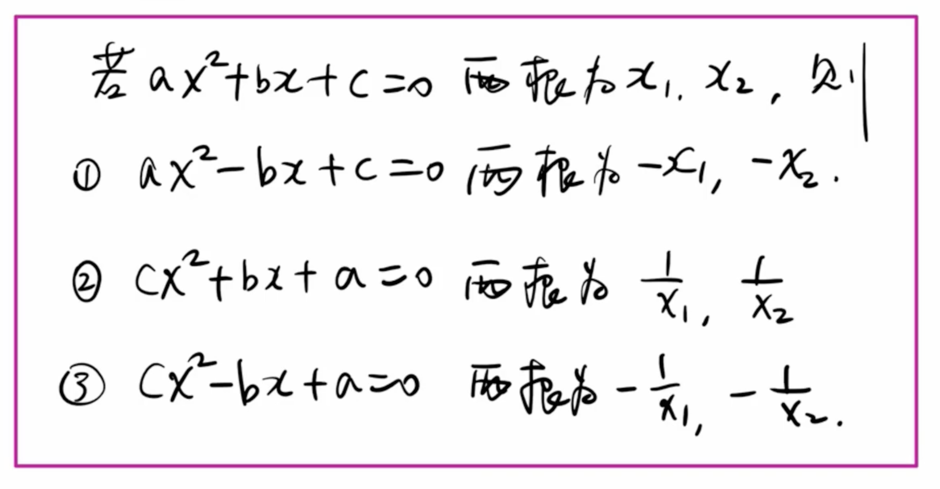 若 ax²+bx+c=0 两根为 x₁, x₂, 则
① ax²-bx+c=0 两根为 -x₁, -x₂.
② cx²+bx+a=0 两根为 1/x₁, 1/x₂
③ cx²-bx+a=0 两根为 -1/x₁, -1/x₂.